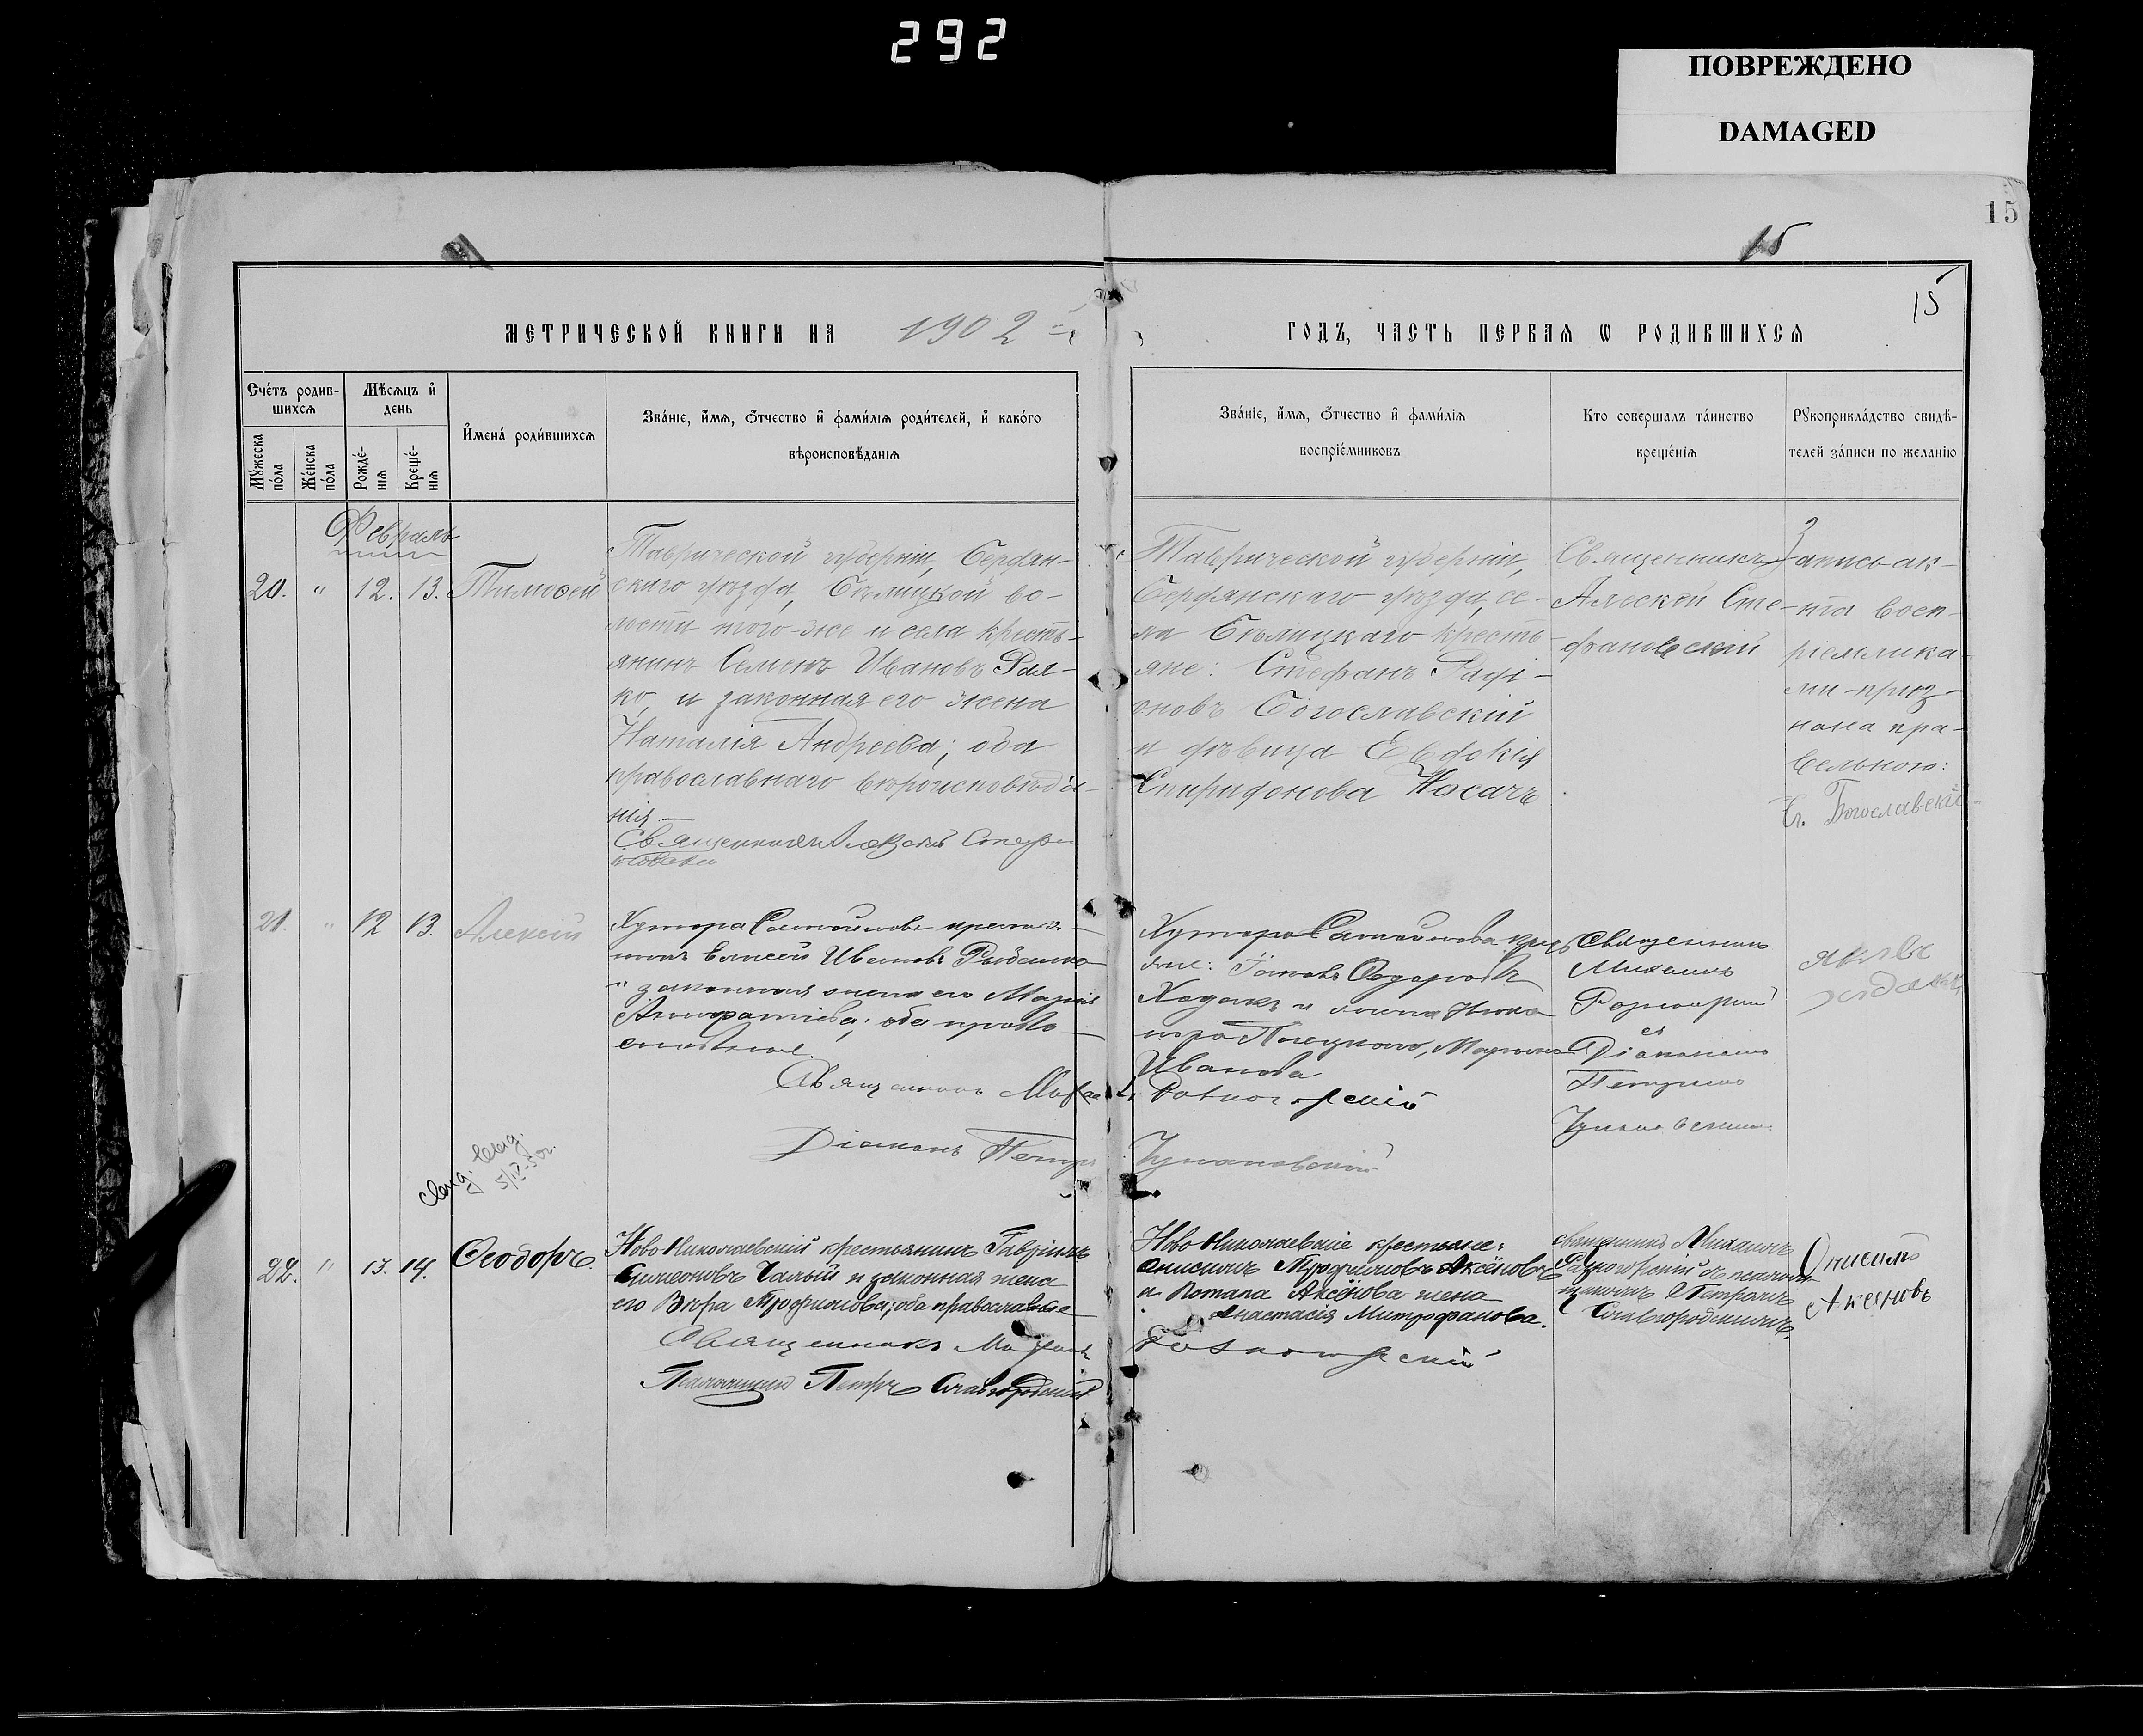 292
ПОВРЕЖДЕНО
DAMAGED
15
15
15
МЕТРИЧЕСКОЙ КНИГИ НА 1902
ГОДЪ, ЧАСТЬ ПЕРВАЯ Ѡ РОДИВШИХСЯ
Счётъ родив-
шихся
Мѣсяцъ и
день
Мꙋжеска
пола
Женска
пола
Рожде-
нія
Креще-
нія
Имена родившихся
Званіе, имя, ѿчество и фамилія родителей, и какого
вѣроисповѣданія
Званіе, имя, ѿчество и фамилія
воспріемниковъ
Кто совершалъ таинство
крещенія
Рꙋкоприкладство свидѣ-
телей записи по желанію
Февраль
20. " 12. 13. Тимоѳей
Таврической губерніи, Бердян-
скаго уѣзда, Бѣлицкой во-
лости того-же и села кресть-
янинъ Семенъ Ивановъ
ко, и законная его жена
Наталія Андреева; оба
православнаго вѣроисповѣда-
нія.
Священникъ Алексѣй
Таврической губерніи,
Бердянскаго уѣзда, се-
ла Бѣлицкаго кресть-
яне: Стефанъ Роді-
оновъ Богославскій
и дѣвица Евдокія
Спиридонова Носачъ
Священникъ
Алексѣй Сте-
фановскій
Запись ак-
та восп-
ріемника-
ми приз-
нана пра-
вельною:
Богославскій
21. " 12 13. Алексій
Хутора
Елисей Ивановъ
и законная жена его Марія
оба право-
славные.
Священникъ
Діаконъ Петръ
Хутора
яне: Іаковъ Ѳедоровъ
Ходакъ и жена
Иванова
Разногорскій
Священникъ
Михаилъ
Разногорскій
съ
Діакономъ
Петромъ
Яковъ
Ходакъ
22. " 13. 14. Ѳеодоръ.
Ново Николаевскій крестьянинъ Гавріилъ
Симеоновъ Чалый и законная жена
его Вѣра Трофимова; оба православные
Священникъ Михаилъ
Псаломщикъ Петръ Славгородскій
Ново Николаевскіе крестьяне:
Онисимъ Трофимовъ Аксёновъ
и Романа Аксёнова жена
Анастасія Митрофанова.
Разногорскій
священникъ Михаилъ
Разногорскій съ псалом-
щикомъ Петромъ
Славгородскимъ.
Онисимъ
Аксеновъ